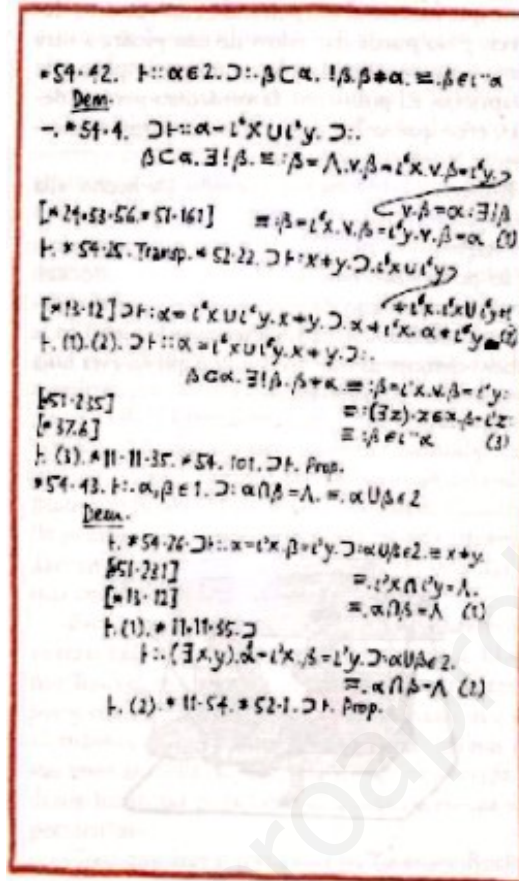 *54·42. ⊢::α∈2.⊃:.β⊂α.!β.β≠α.≡.β∈ι"α
Dem.
–.*54·4. ⊃⊢::α=ι‘x∪ι‘y.⊃:.
β⊂α.∃!β.≡:β=Λ.v.β=ι‘x.v.β=ι‘y.
v.β=α:∃!β
[*24·53·56.*51·161] ≡:β=ι‘x.v.β=ι‘y.v.β=α (1)
⊢.*54·25.Transp.*52·22.⊃⊢:x≠y.⊃.ι‘x∪ι‘y
≠ι‘x.ι‘x∪ι‘y≠
[*13·12]⊃⊢:α=ι‘x∪ι‘y.x≠y.⊃.α≠ι‘x.α≠ι‘y (2)
⊢.(1).(2).⊃⊢::α=ι‘x∪ι‘y.x≠y.⊃:.
β⊂α.∃!β.β≠α.≡:β=ι‘x.v.β=ι‘y:
[*51·235] ≡:(∃z).z∈α.β=ι‘z:
[*37.6] ≡:β∈ι"α (3)
⊢.(3).*11·11·35.*54.101.⊃⊢.Prop.
*54·43.⊢:.α,β∈1.⊃:α∩β=Λ.≡.α∪β∈2
Dem.
⊢.*54·26⊃⊢:.α=ι‘x.β=ι‘y.⊃:α∪β∈2.≡.x≠y.
[*51·231] ≡.ι‘x∩ι‘y=Λ.
[*13·12] ≡.α∩β=Λ (1)
⊢.(1).*11·11·35.⊃
⊢:.(∃x,y).α=ι‘x.β=ι‘y.⊃:α∪β∈2.
≡.α∩β=Λ (2)
⊢.(2).*11·54.*52·1.⊃⊢.Prop.